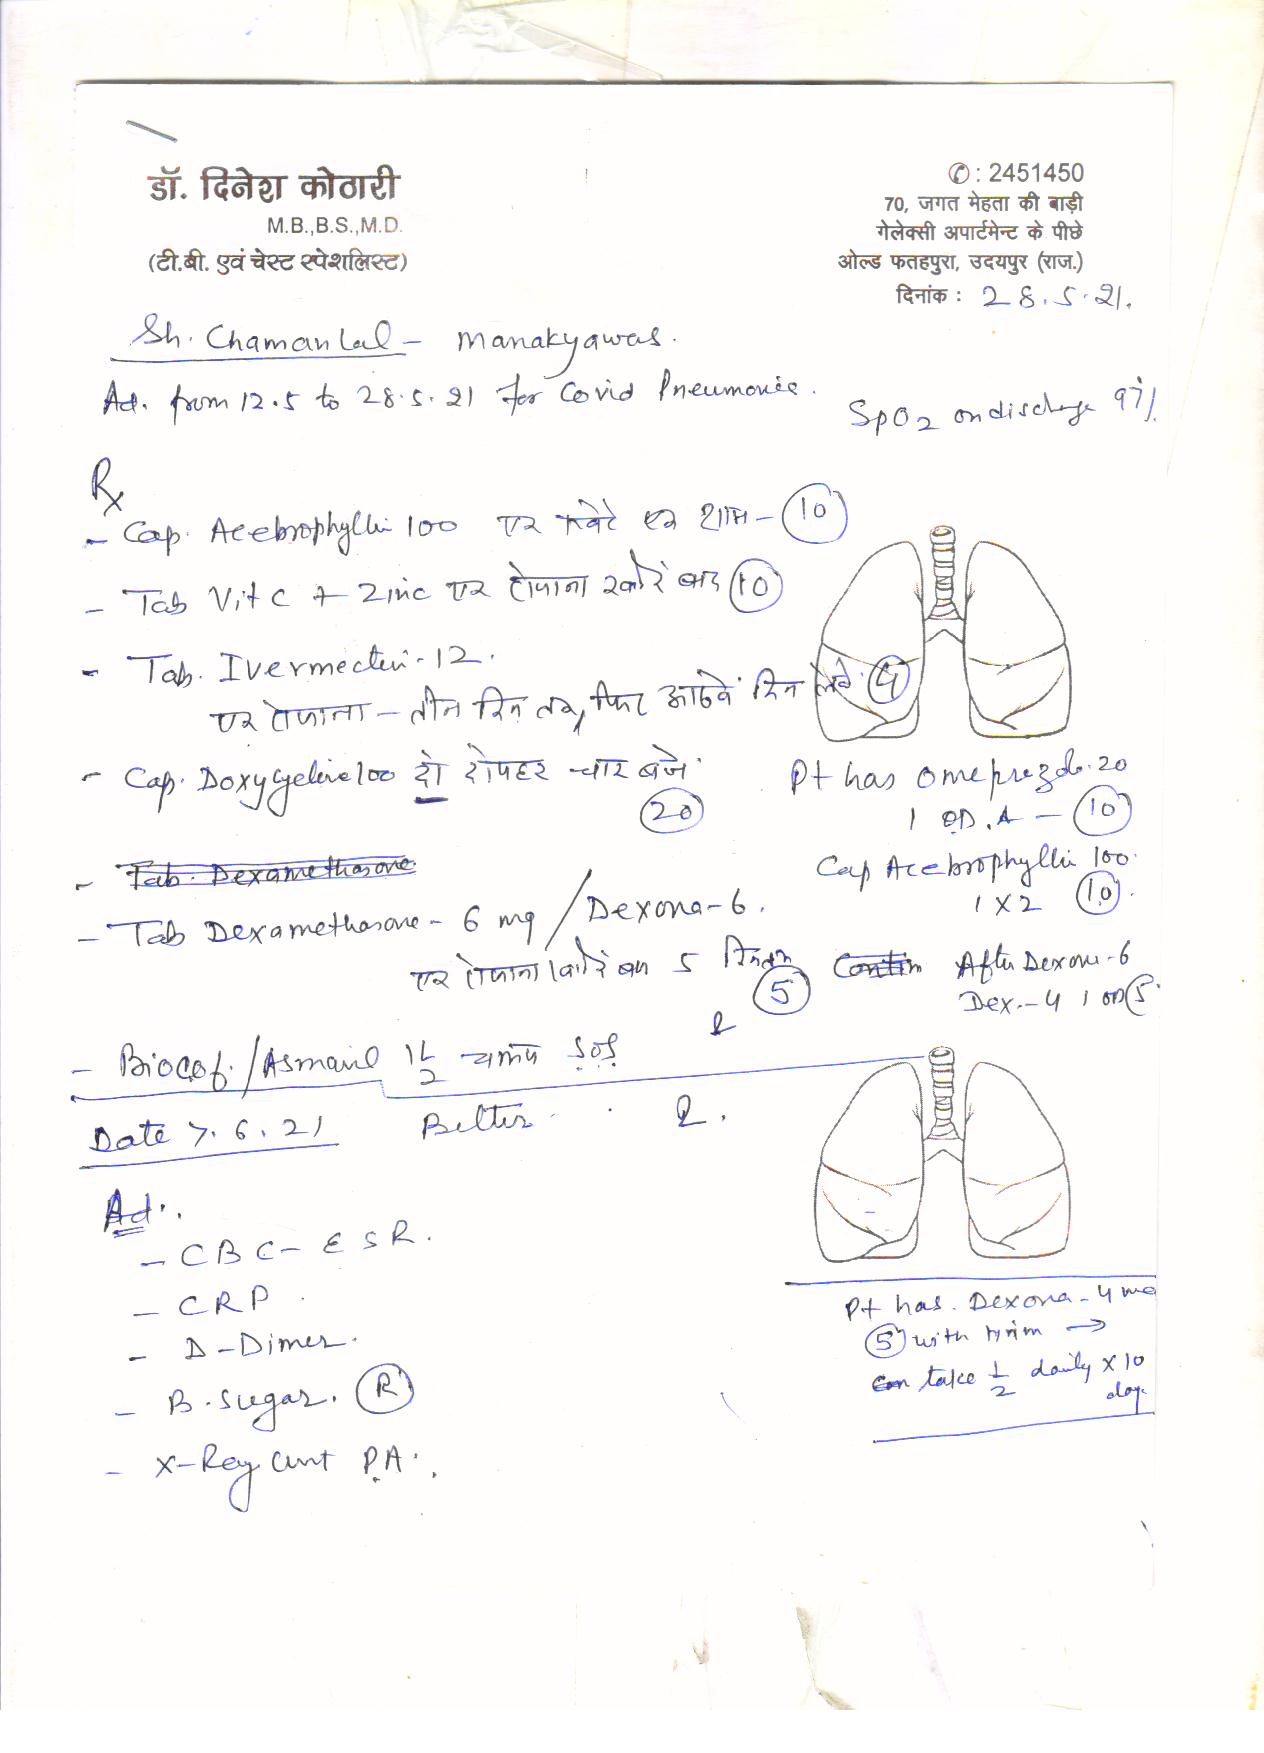 डॉ. दिनेश कोठारी
M.B.,B.S.,M.D.
(टी.बी. एवं चेस्ट स्पेशलिस्ट)
✆ : 2451450
70, जगत मेहता की बाड़ी
गेलेक्सी अपार्टमेन्ट के पीछे
ओल्ड फतहपुरा, उदयपुर (राज.)
दिनांक : 28.5.21.
Sh. Chamanlal - Manakyawas.
Ad. from 12.5 to 28.5.21 for Covid Pneumonia.
SpO2 on discharge 97%
Rx
- Cap. Acebrophyllin 100 एक सवेरे एक शाम - 10
- Tab Vit C + Zinc एक रोजाना खाने बाद 10
- Tab. Ivermectin - 12.
एक रोजाना - तीन दिन तक, फिर आठवें दिन लेवें 4
- Cap. Doxycycline 100 दो दोपहर चार बजे
20
- Tab. Dexamethasone
- Tab Dexamethasone - 6 mg / Dexona - 6.
एक रोजाना खाने बाद 5 दिन तक
5
- Biocof. / Asmanil 1 1/2 चम्मच SOS
Pt has Omeprazole. 20
1 OD. A - 10
Cap Acebrophyllin 100.
1 X 2 10
Contin After Dexona - 6
Dex. - 4 1 OD 5
Date 7.6.21 Better
Ad.
- CBC - ESR.
- CRP
- D-Dimer.
- B. Sugar. R
- X-Ray Chest PA.
Pt has. Dexona - 4 mg
5 with him →
can take 1/2 daily X 10
days